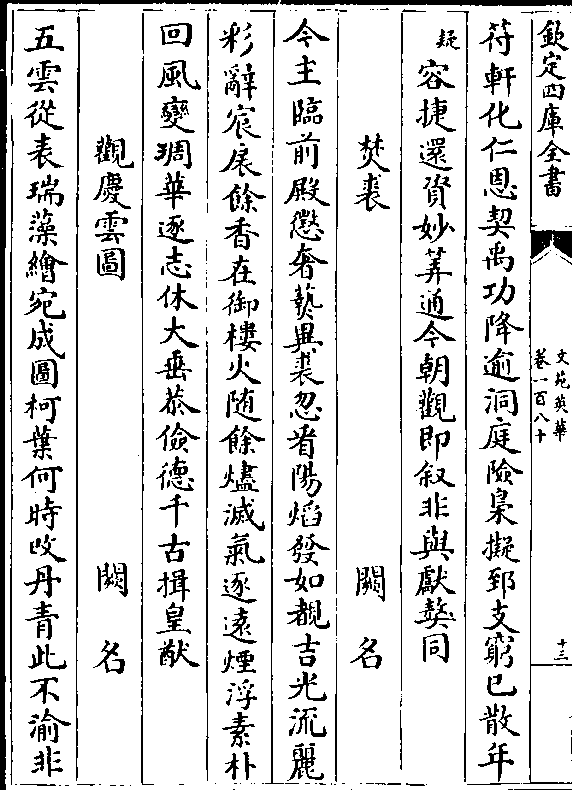 欽定四庫全書
文苑英華
卷一百八十
十三
符軒化仁恩契禹功降逾洞庭險梟擬郅支窮已散年
疑容捷還資妙筭通今朝觀即叙非與獻獒同
焚裘 闕名
今主臨前殿懲奢爇異裘忽看陽焰發如覩吉光流麗
彩辭宸扆餘香在御樓火随餘燼滅氣逐遠煙浮素朴
回風變琱華逐志休大垂恭儉德千古揖皇猷
觀慶雲圖 闕名
五雲從表瑞藻繪宛成圖柯葉何時改丹青此不渝非